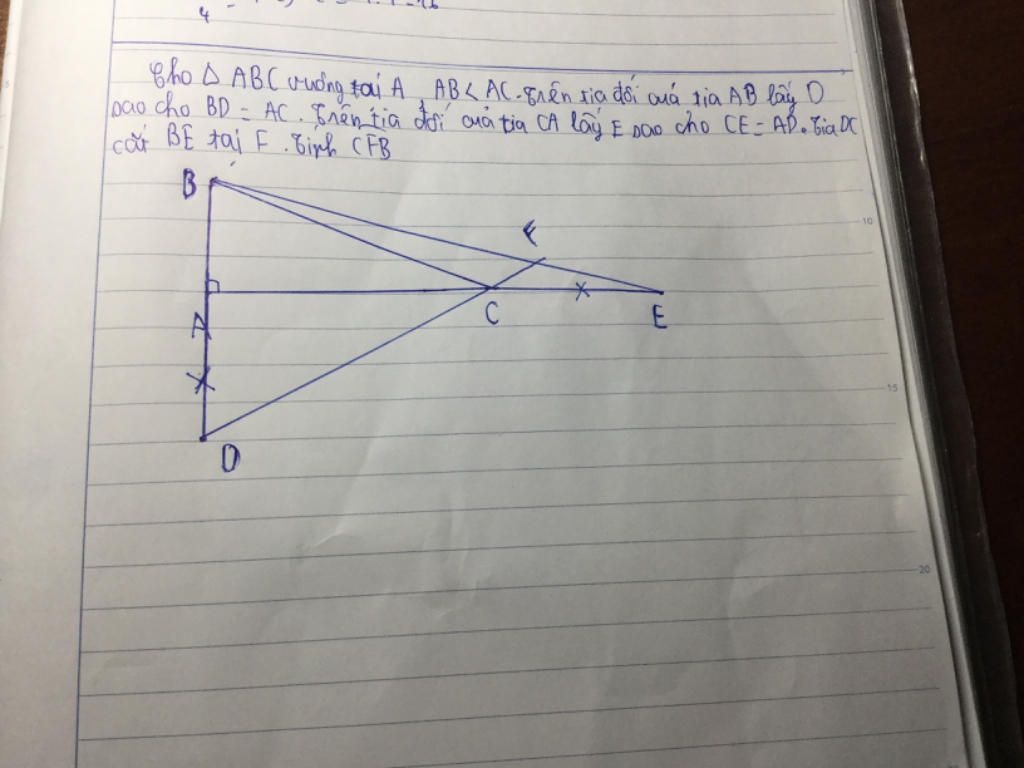 4
Cho Δ ABC vuông tại A AB < AC. Trên tia đối của tia AB lấy D
sao cho BD = AC. Trên tia đối của tia CA lấy E sao cho CE = AD. Tia DC
cắt BE tại F. Tính CFB
B
F
10
A
C
E
15
D
20